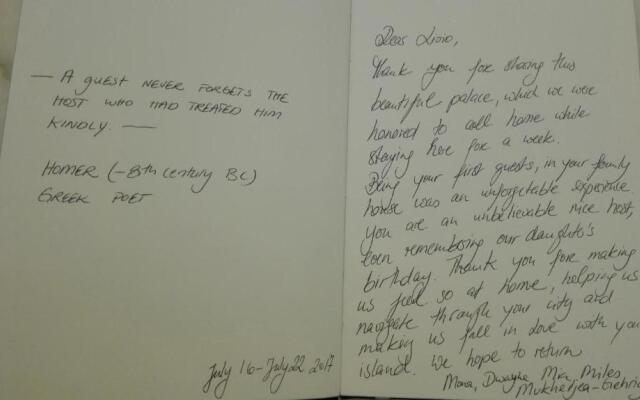 — A GUEST NEVER FORGETS THE
HOST WHO HAD TREATED HIM
KINDLY. —
HOMER (-8th century BC)
GREEK POET
July 16-July 22 2017
Dear
Thank you for sharing this
beautiful palace, which we were
honored to call home while
staying here for a week.
Being your first guests, in your family
house was an unforgetable experience.
You are an unbelievable nice host,
even remembering our daughter's
birthday. Thank you for making
us feel so at home, helping us
navigate through your city and
making us fall in love with your
island. We hope to return
Mona, Dwayne, Mia, Miles